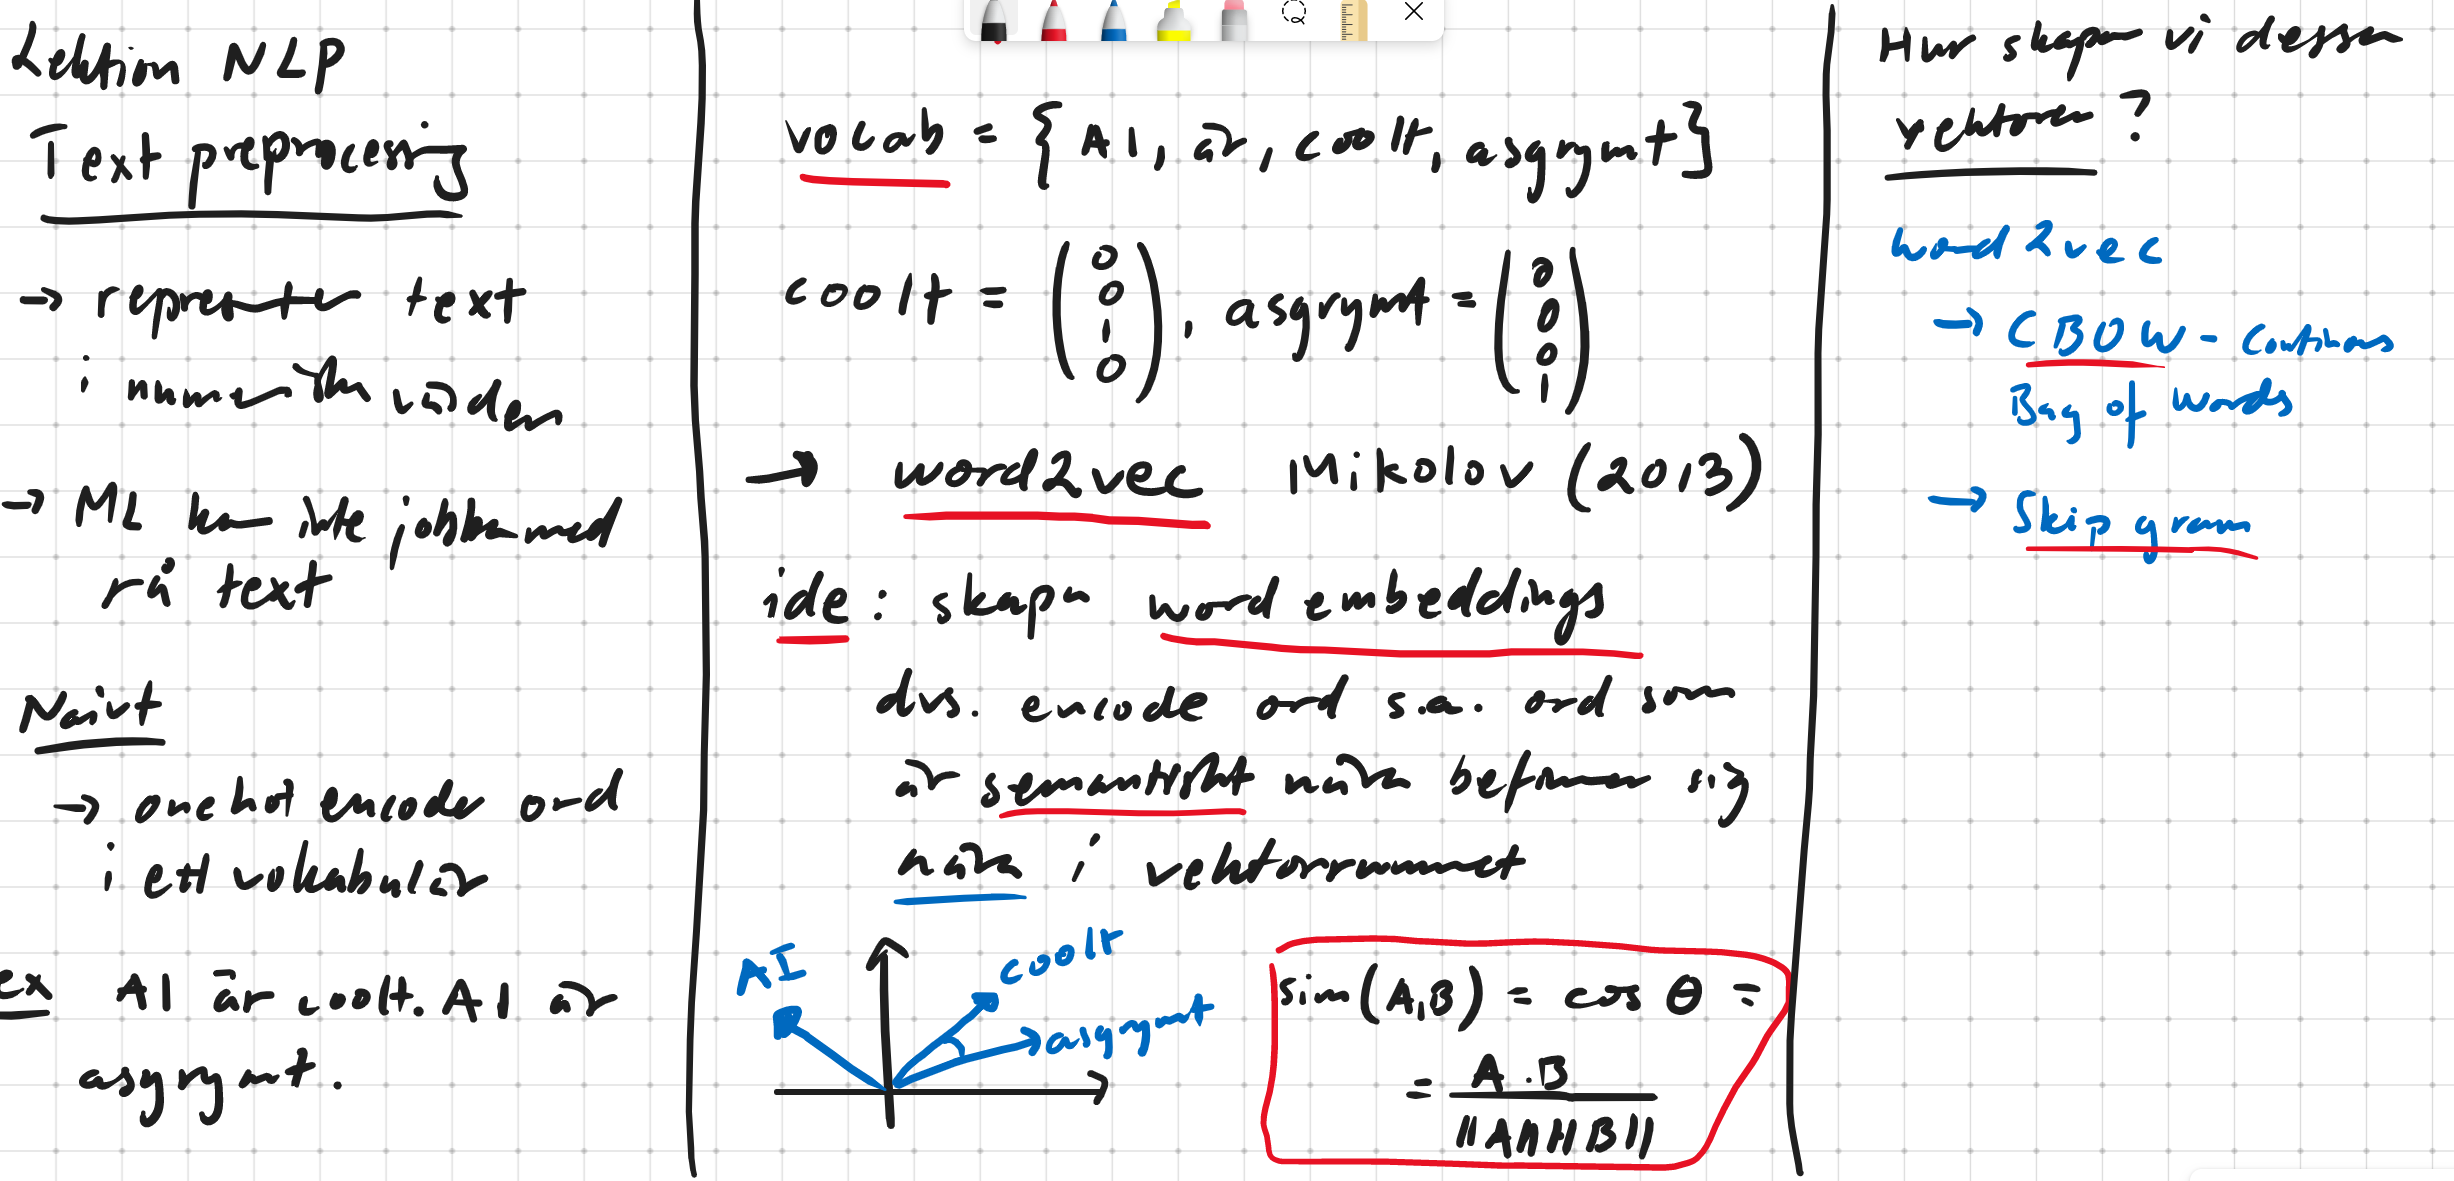 Lektion NLP
Text preprocessing
→ representer text
i numeriska värden
→ ML kan inte jobba med
rå text
Naivt
→ one hot encode ord
i ett vokabulär
ex AI är coolt. AI är
asgrymt.
vocab = { AI, är, coolt, asgrymt }
coolt = (0 0 1 0), asgrymt = (0 0 0 1)
→ word2vec Mikolov (2013)
ide: skapa word embeddings
dvs. encode ord s.a. ord som
är semantiskt nära befinner sig
nära i vektorrummet
AI
coolt
asgrymt
sim(A,B) = cos θ =
= A·B / ||A|| ||B||
Hur skapar vi dessa
vektorer?
word2vec
→ CBOW - Continous
Bag of words
→ Skip gram